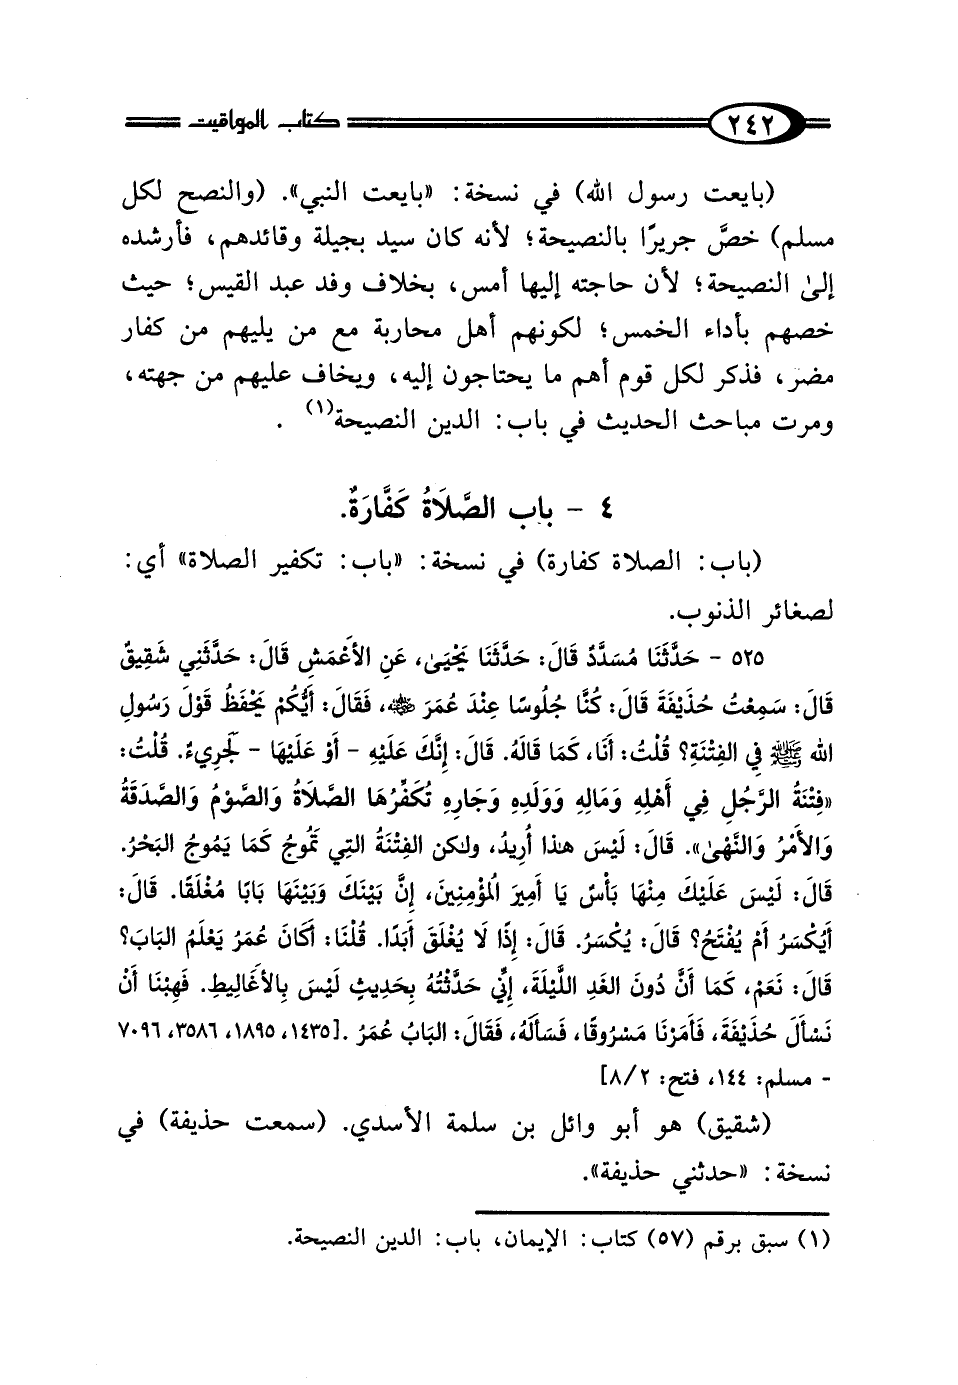 ٢٤٢ كتاب المواقيت
(بايعت رسول الله) في نسخة: «بايعت النبي». (والنصح لكل
مسلم) خصَّ جريرًا بالنصيحة؛ لأنه كان سيد بجيلة وقائدهم، فأرشده
إلىٰ النصيحة؛ لأن حاجته إليها أمس، بخلاف وفد عبد القيس؛ حيث
خصهم بأداء الخمس؛ لكونهم أهل محاربة مع من يليهم من كفار
مضر، فذكر لكل قوم أهم ما يحتاجون إليه، ويخاف عليهم من جهته،
ومرت مباحث الحديث في باب: الدين النصيحة(١) .
٤ - باب الصَّلَاةُ كَفَّارَةٌ.
(باب: الصلاة كفارة) في نسخة: «باب: تكفير الصلاة» أي:
لصغائر الذنوب.
٥٢٥ - حَدَّثَنَا مُسَدَّدٌ قَالَ: حَدَّثَنَا يَحْيَىٰ، عَنِ الأَعْمَشِ قَالَ: حَدَّثَنِي شَقِيقٌ
قَالَ: سَمِعْتُ حُذَيْفَةَ قَالَ: كُنَّا جُلُوسًا عِنْدَ عُمَرَ ﷺ، فَقَالَ: أَيُّكُمْ يَحْفَظُ قَوْلَ رَسُولِ
الله ﷺ فِي الفِتْنَةِ؟ قُلْتُ: أَنَا، كَمَا قَالَهُ. قَالَ: إِنَّكَ عَلَيْهِ - أَوْ عَلَيْهَا - لَجَرِيءٌ. قُلْتُ:
«فِتْنَةُ الرَّجُلِ فِي أَهْلِهِ وَمَالِهِ وَوَلَدِهِ وَجَارِهِ تُكَفِّرُهَا الصَّلَاةُ وَالصَّوْمُ وَالصَّدَقَةُ
وَالأَمْرُ وَالنَّهْىٰ». قَالَ: لَيْسَ هٰذا أُرِيدُ، ولٰكن الفِتْنَةُ التِي تَمُوجُ كَمَا يَمُوجُ البَحْرُ.
قَالَ: لَيْسَ عَلَيْكَ مِنْهَا بَأْسٌ يَا أَمِيرَ الُمؤْمِنِينَ، إِنَّ بَيْنَكَ وَبَيْنَهَا بَابًا مُغْلَقًا. قَالَ:
أَيُكْسَرُ أَمْ يُفْتَحُ؟ قَالَ: يُكْسَرُ. قَالَ: إِذًا لَا يُغْلَقَ أَبَدًا. قُلْنَا: أَكَانَ عُمَرُ يَعْلَمُ البَابَ؟
قَالَ: نَعَمْ، كَمَا أَنَّ دُونَ الغَدِ اللَّيْلَةَ، إِنِّي حَدَّثْتُهُ بِحَدِيثٍ لَيْسَ بِالأَغَالِيطِ. فَهِبْنَا أَنْ
نَسْأَلَ حُذَيْفَةَ، فَأَمَرْنَا مَسْرُوقًا، فَسَأَلَهُ، فَقَالَ: البَابُ عُمَرُ .[١٤٣٥، ١٨٩٥، ٣٥٨٦، ٧٠٩٦
- مسلم: ١٤٤، فتح: ٢/ ٨]
(شقيق) هو أبو وائل بن سلمة الأسدي. (سمعت حذيفة) في
نسخة: «حدثني حذيفة».
(١) سبق برقم (٥٧) كتاب: الإيمان، باب: الدين النصيحة.